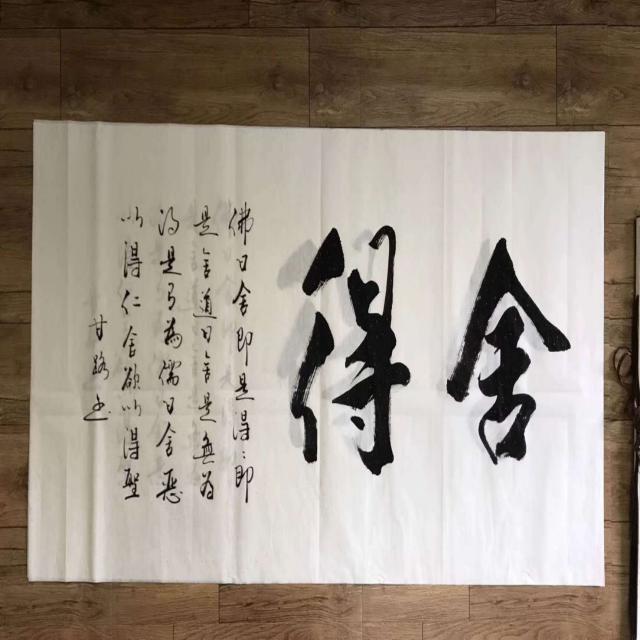 舍得
佛曰舍即是得得即
是舍道曰舍是無为
得是有為儒曰舍惡
以得仁舍欲以得聖
甘路书